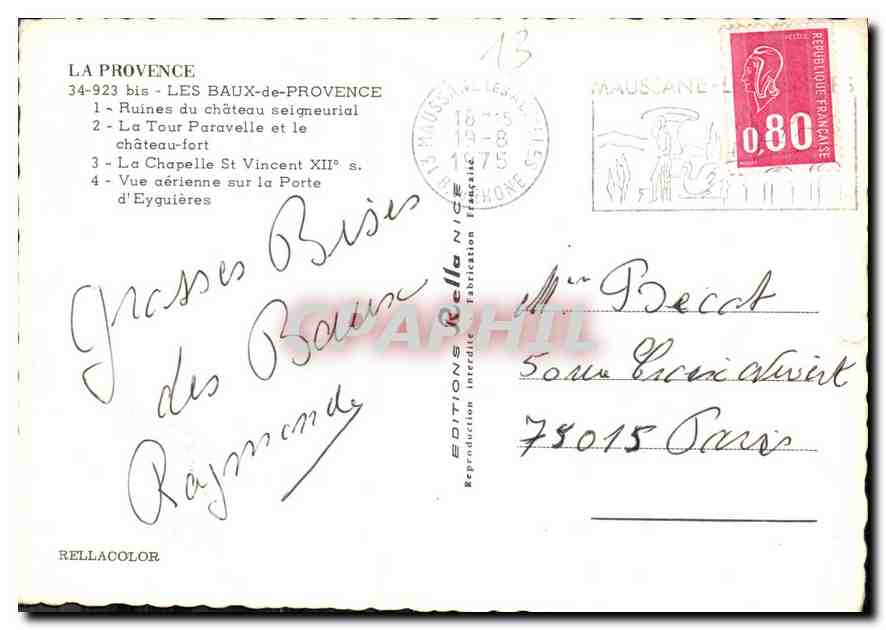 13
LA PROVENCE
34-923 bis - LES BAUX-de-PROVENCE
1 - Ruines du château seigneurial
2 - La Tour Paravelle et le
château-fort
3 - La Chapelle St Vincent XII° s.
4 - Vue aérienne sur la Porte
d'Eyguières
18
19-8
1975
MAUSSANE
POSTES
REPUBLIQUE FRANÇAISE
0,80
Grosses Bises
des Baux
Raymonde
EDITIONS Rella NICE
Reproduction interdite Fabrication Française
CPAPHIL
Becat
50 rue Croix Nivert
75015 Paris
RELLACOLOR